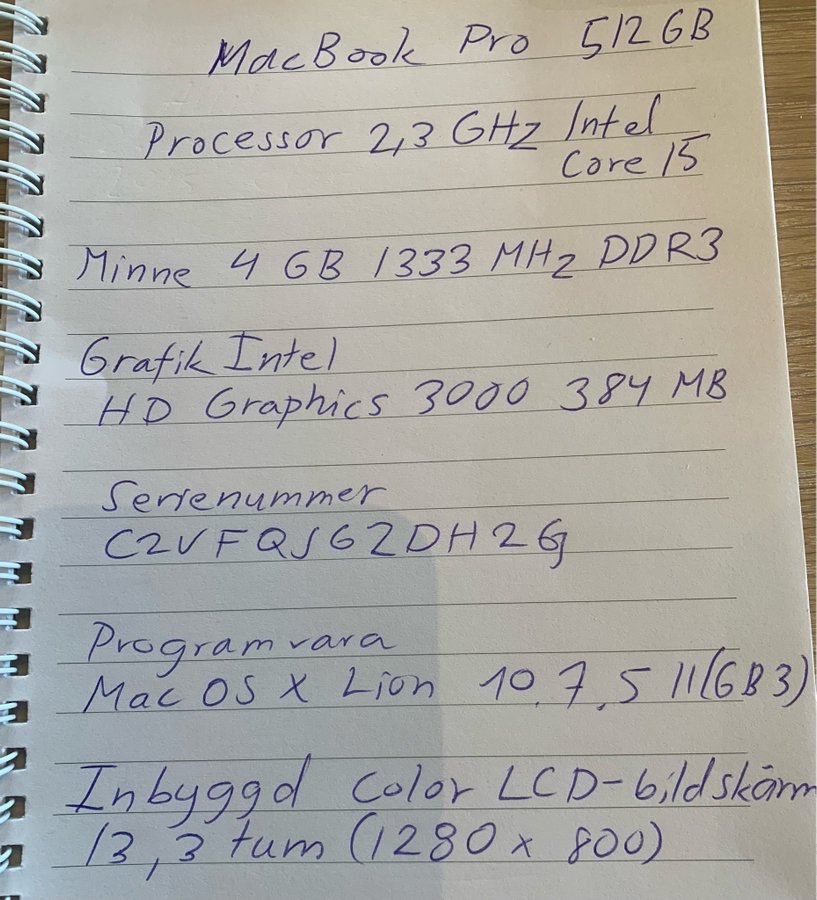 MacBook Pro 512GB
Processor 2,3 GHz Intel
Core i5
Minne 4 GB 1333 MHz DDR3
Grafik Intel
HD Graphics 3000 384 MB
Serienummer
C2VFQJG2DH2G
Programvara
Mac OS X Lion 10.7.5 11(GB3)
Inbyggd Color LCD-bildskärm
13,3 tum (1280 x 800)